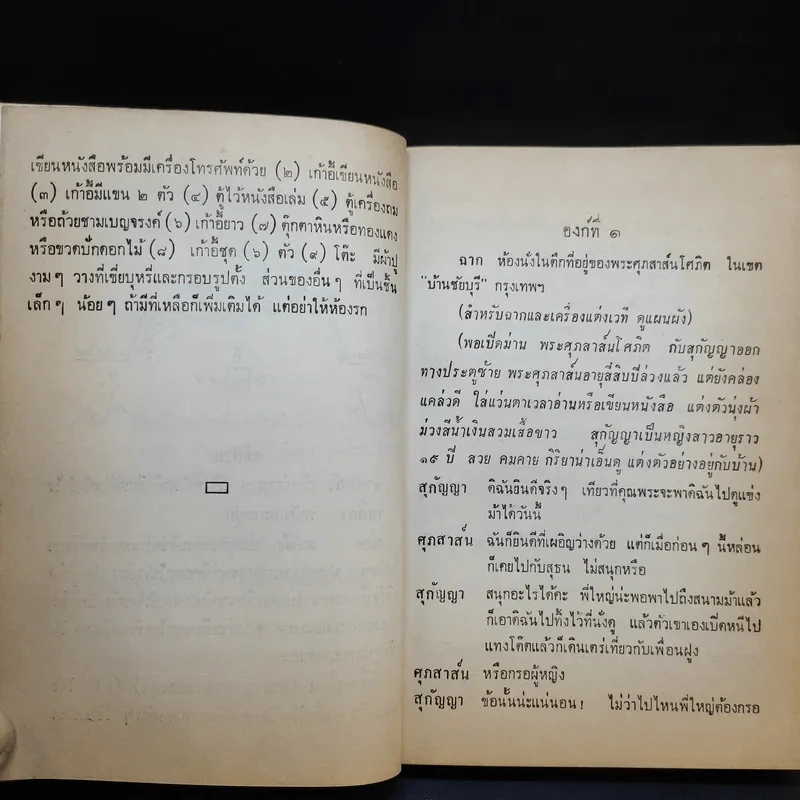 เขียนหนังสือพร้อมมีเครื่องโทรศัพท์ด้วย (๒) เก้าอี้เขียนหนังสือ
(๓) เก้าอี้มีแขน ๒ ตัว (๔) ตู้ไว้หนังสือเล่ม (๕) ตู้เครื่องถม
หรือถ้วยชามเบญจรงค์ (๖) เก้าอี้ยาว (๗) ตุ๊กตาหินหรือทองแดง
หรือขวดปักดอกไม้ (๘) เก้าอี้ชุด (๖) ตัว (๙) โต๊ะ มีผ้าปู
งามๆ วางที่เขี่ยบุหรี่และกรอบรูปตั้ง ส่วนของอื่นๆ ที่เป็นชิ้น
เล็กๆ น้อยๆ ถ้ามีที่เหลือก็เพิ่มเติมได้ แต่อย่าให้ห้องรก
องก์ที่ ๑
ฉาก ห้องนั่งในตึกที่อยู่ของพระศุภสาส์นโศภิต ในเขต
"บ้านชัยบุรี" กรุงเทพฯ
(สำหรับฉากและเครื่องแต่งเวที ดูแผนผัง)
(พอเปิดม่าน พระศุภสาส์นโศภิต กับสุกัญญาออก
ทางประตูซ้าย พระศุภสาส์นอายุสี่สิบปีล่วงแล้ว แต่ยังคล่อง
แคล่วดี ใส่แว่นตาเวลาอ่านหรือเขียนหนังสือ แต่งตัวนุ่งผ้า
ม่วงสีน้ำเงินสวมเสื้อขาว สุกัญญาเป็นหญิงสาวอายุราว
๑๙ ปี สวย คมคาย กิริยาน่าเอ็นดู แต่งตัวอย่างอยู่กับบ้าน)
สุกัญญา ดิฉันยินดีจริงๆ เทียวที่คุณพระจะพาดิฉันไปดูแข่ง
ม้าได้วันนี้
ศุภสาส์น ฉันก็ยินดีที่เผอิญว่างด้วย แต่ก็เมื่อก่อนๆ นี้หล่อน
ก็เคยไปกับสุธน ไม่สนุกหรือ
สุกัญญา สนุกอะไรได้คะ พี่ใหญ่น่ะพอพาไปถึงสนามม้าแล้ว
ก็เอาดิฉันไปทิ้งไว้ที่นั่งดู แล้วตัวเขาเองเปิดหนีไป
แทงโต๊ตแล้วก็เดินเตร่เที่ยวกับเพื่อนฝูง
ศุภสาส์น หรือกรอผู้หญิง
สุกัญญา ข้อนั้นน่ะแน่นอน! ไม่ว่าไปไหนพี่ใหญ่ต้องกรอ